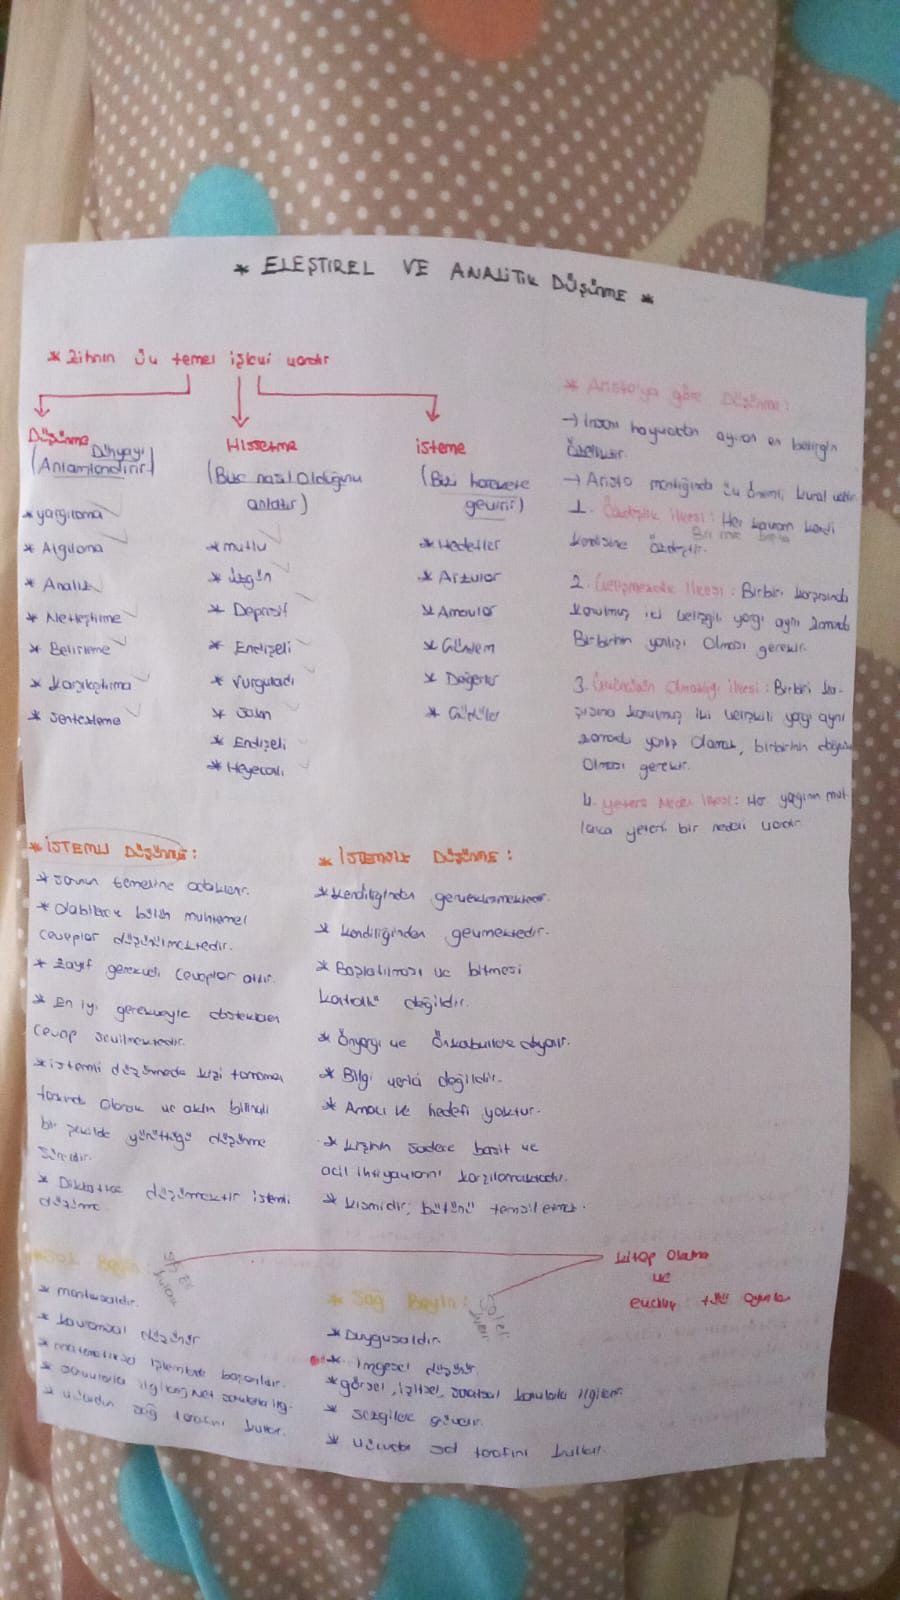 * ELEŞTİREL VE ANALİTİK DÜŞÜNME *
* Zihnin üç temel işlevi vardır
Düşünme
(Dünyayı
Anlamlandırır)
* yargılama
* Algılama
* Analiz
* Netleştirme
* Belirleme
* Karşılaştırma
* Sentezleme
Hissetme
(Bize nasıl olduğunu
anlatır)
* mutlu
* üzgün
* Depresif
* Endişeli
* Vurguladı
* Sakin
* Endişeli
* Heyecanlı
isteme
(Bizi harekete
geçirir)
* Hedefler
* Arzular
* Amaçlar
* Gündem
* Değerler
* Güdüler
* Aristo'ya göre Düşünme:
→ İnsanı hayvandan ayıran en belirgin
özelliktir.
→ Aristo mantığında üç önemli kural vardır.
1. Özdeşlik ilkesi: Her kavram kendi
kendisine özdeştir.
2. Çelişmezlik ilkesi: Birbiri karşısında
konulmuş iki çelişgili yargı aynı zamanda
Birbirinin yanlışı Olması gerekir.
3. Üçüncünün Olmazlığı ilkesi: Birbiri kar-
şısına konulmuş iki çelişkili yargı aynı
zamanda yanlış olamaz, birbirinin doğrusu
Olması gerekir.
4. Yeterli Neden İlkesi: Her yargının mut-
laka yeterli bir nedeni vardır.
* İSTEMLİ DÜŞÜNME:
* Sorunun temeline odaklanır.
* Olabilecek bütün muhtemel
cevaplar düşünülmektedir.
* Zayıf gerekçeli cevaplar atılır.
* En iyi gerekçeyle desteklenen
cevap seçilmektedir.
* istemli düşünmede kişi tamamen
olarak ve aklın bilinçli
bir şekilde yürüttüğü düşünme
sürecidir.
* Dikkatlice düşünmektir istemli
düşünme.
* İSTEMSİZ DÜŞÜNME:
* Kendiliğinden gerçekleşmektedir.
* Kendiliğinden geçmektedir.
* Başlatılması ve bitmesi
kontrollü değildir.
* Önyargı ve Önkabullere dayanır.
* Bilgi verici değildir.
* Amacı ve hedefi yoktur.
* Kişinin sadece basit ve
acil ihtiyaçlarını karşılamaktadır.
* Kısmidir, bütünü temsil etmez.
* Sol Beyin: Sağ El
* mantıksaldır.
* kavramsal düşünür
* matematiksel işlemlerde başarılıdır.
* sonuçlarla ilgilenir, Net sonuçlarla ilg.
* vücudun sağ tarafını kullanır.
* Sağ Beyin: Sol el
* Duygusaldır.
* İmgesel düşünür
* görsel, işitsel, sanatsal konularla ilgilenir.
* sezgilere güvenir.
* vücudun sol tarafını kullanır.
kitap okuma
ve
türü oyunlar